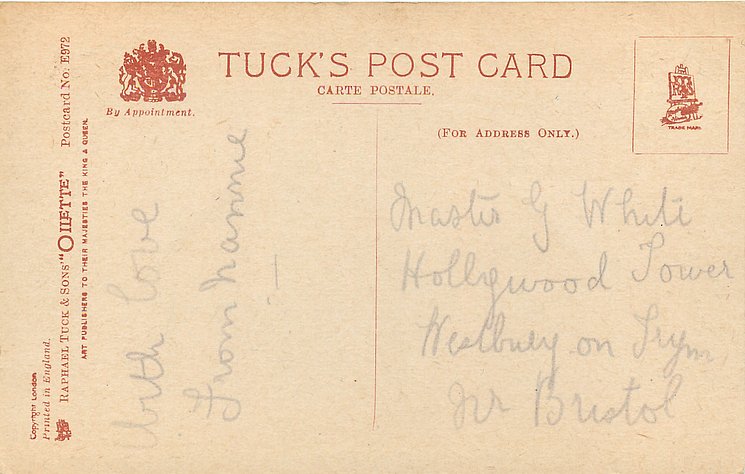 TUCK'S POST CARD
CARTE POSTALE.
By Appointment.
(FOR ADDRESS ONLY.)
TRADE MARK
Postcard No. E972
RAPHAEL TUCK & SONS' "OILETTE"
ART PUBLISHERS TO THEIR MAJESTIES THE KING & QUEEN.
Copyright London
Printed in England.
With love
From Nannie
Master G White
Hollywood Tower
Westbury on Trym
Nr Bristol